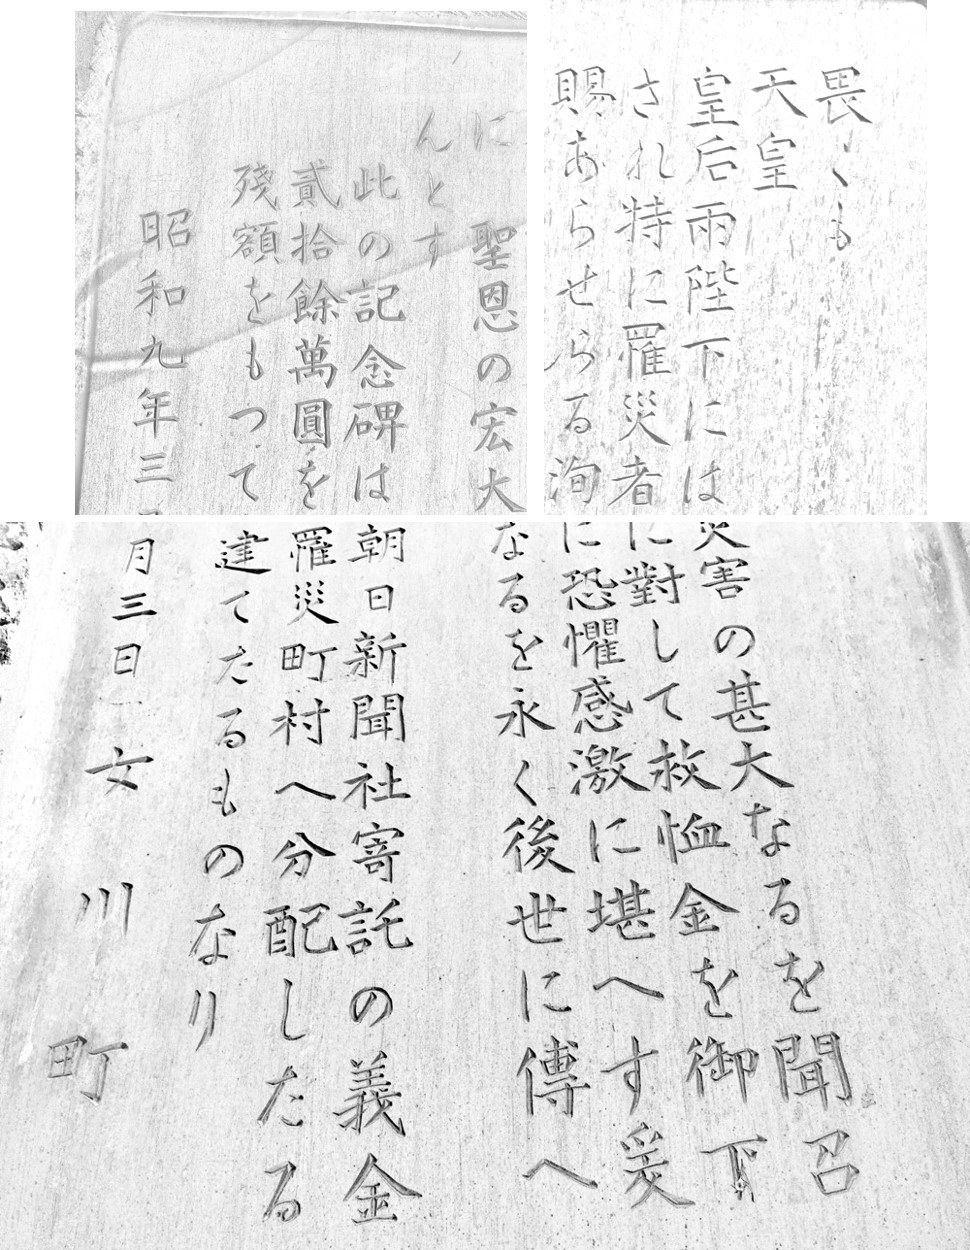 畏くも
天皇
皇后兩陛下には災害の甚大なるを聞召
され特に罹災者に對して救恤金を御下
賜あらせらる洵に恐懼感激に堪へす爰
に 聖恩の宏大なるを永く後世に傳へ
んとす
此の記念碑は朝日新聞社寄託の義金
貳拾餘萬圓を罹災町村へ分配したる
殘額をもつて建てたるものなり
昭和九年三月三日 女川町